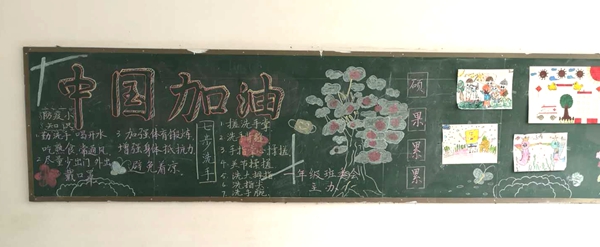 中国加油
防疫小
知识
1.勤洗手 喝开水
吃熟食 常通风
2.尽量少出门 外出
戴口罩
3.加强体育锻炼
增强身体抵抗力
避免着凉
七步洗手
1.搓洗手掌
2.洗手背
3.手 搓
4.关节搓搓
5.洗大拇指
6.洗指尖
7.洗手腕
一年级 班委会
主办
硕果累累